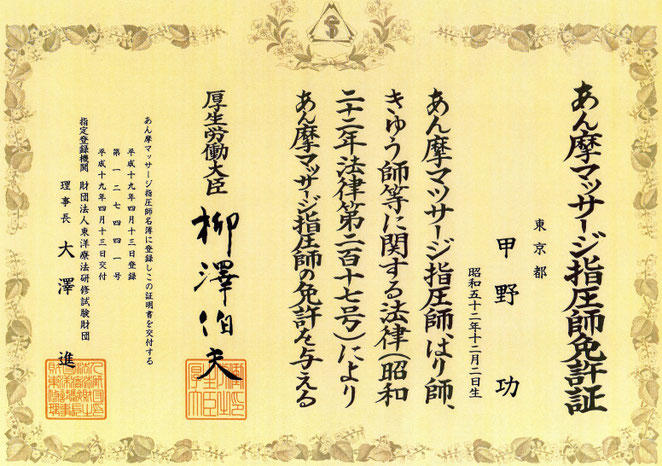 あん摩マッサージ指圧師免許証
東京都
甲野 功
昭和五十二年十二月二日生
あん摩マッサージ指圧師、はり師、
きゆう師等に関する法律(昭和
二十二年法律第二百十七号)により
あん摩マッサージ指圧師の免許を与える
厚生労働大臣 柳澤伯夫
あん摩マッサージ指圧師名簿に登録しこの証明書を交付する
平成十九年四月十三日登録
第一二七四四一号
平成十九年四月十三日交付
指定登録機関 財団法人東洋療法研修試験財団
理事長 大澤 進